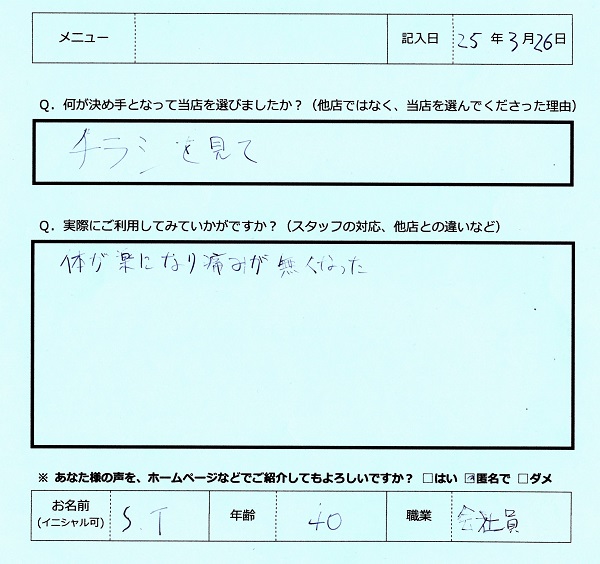 メニュー 記入日 25年3月26日
Q．何が決め手となって当店を選びましたか？（他店ではなく、当店を選んでくださった理由）
チラシを見て
Q．実際にご利用してみていかがですか？（スタッフの対応、他店との違いなど）
体が楽になり痛みが無くなった
※ あなた様の声を、ホームページなどでご紹介してもよろしいですか？ □はい ☑匿名で □ダメ
お名前 S.T 年齢 40 職業 会社員
(イニシャル可)